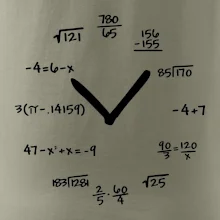 780/65
√121
156
-155
-4=6-x
85)170
3(π-.14159)
-4+7
47-x²+x=-9
90/3=120/x
183)1281
2/5·60/4
√25